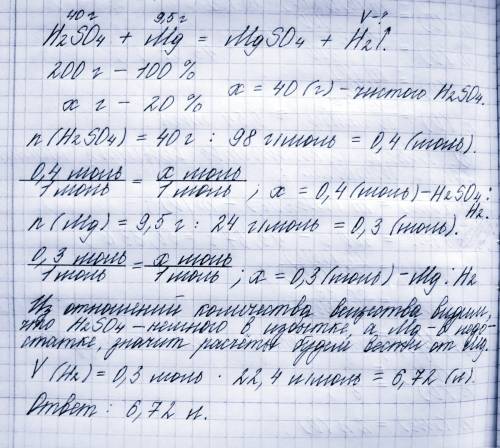 40 г 9,5 г V-?
H2SO4 + Mg = MgSO4 + H2↑.
200 г – 100 %
x г – 20 % x = 40 (г) – чистого H2SO4.
n (H2SO4) = 40 г : 98 г/моль = 0,4 (моль).
0,4 моль / 1 моль = x моль / 1 моль ; x = 0,4 (моль) – H2SO4 : H2.
n (Mg) = 9,5 г : 24 г/моль = 0,3 (моль).
0,3 моль / 1 моль = x моль / 1 моль ; x = 0,3 (моль) – Mg : H2
Из отношений количества вещества видим,
что H2SO4 – немного в избытке, а Mg – в недо-
статке, значит расчёты будем вести от Mg.
V (H2) = 0,3 моль · 22,4 л/моль = 6,72 (л).
Ответ: 6,72 л.